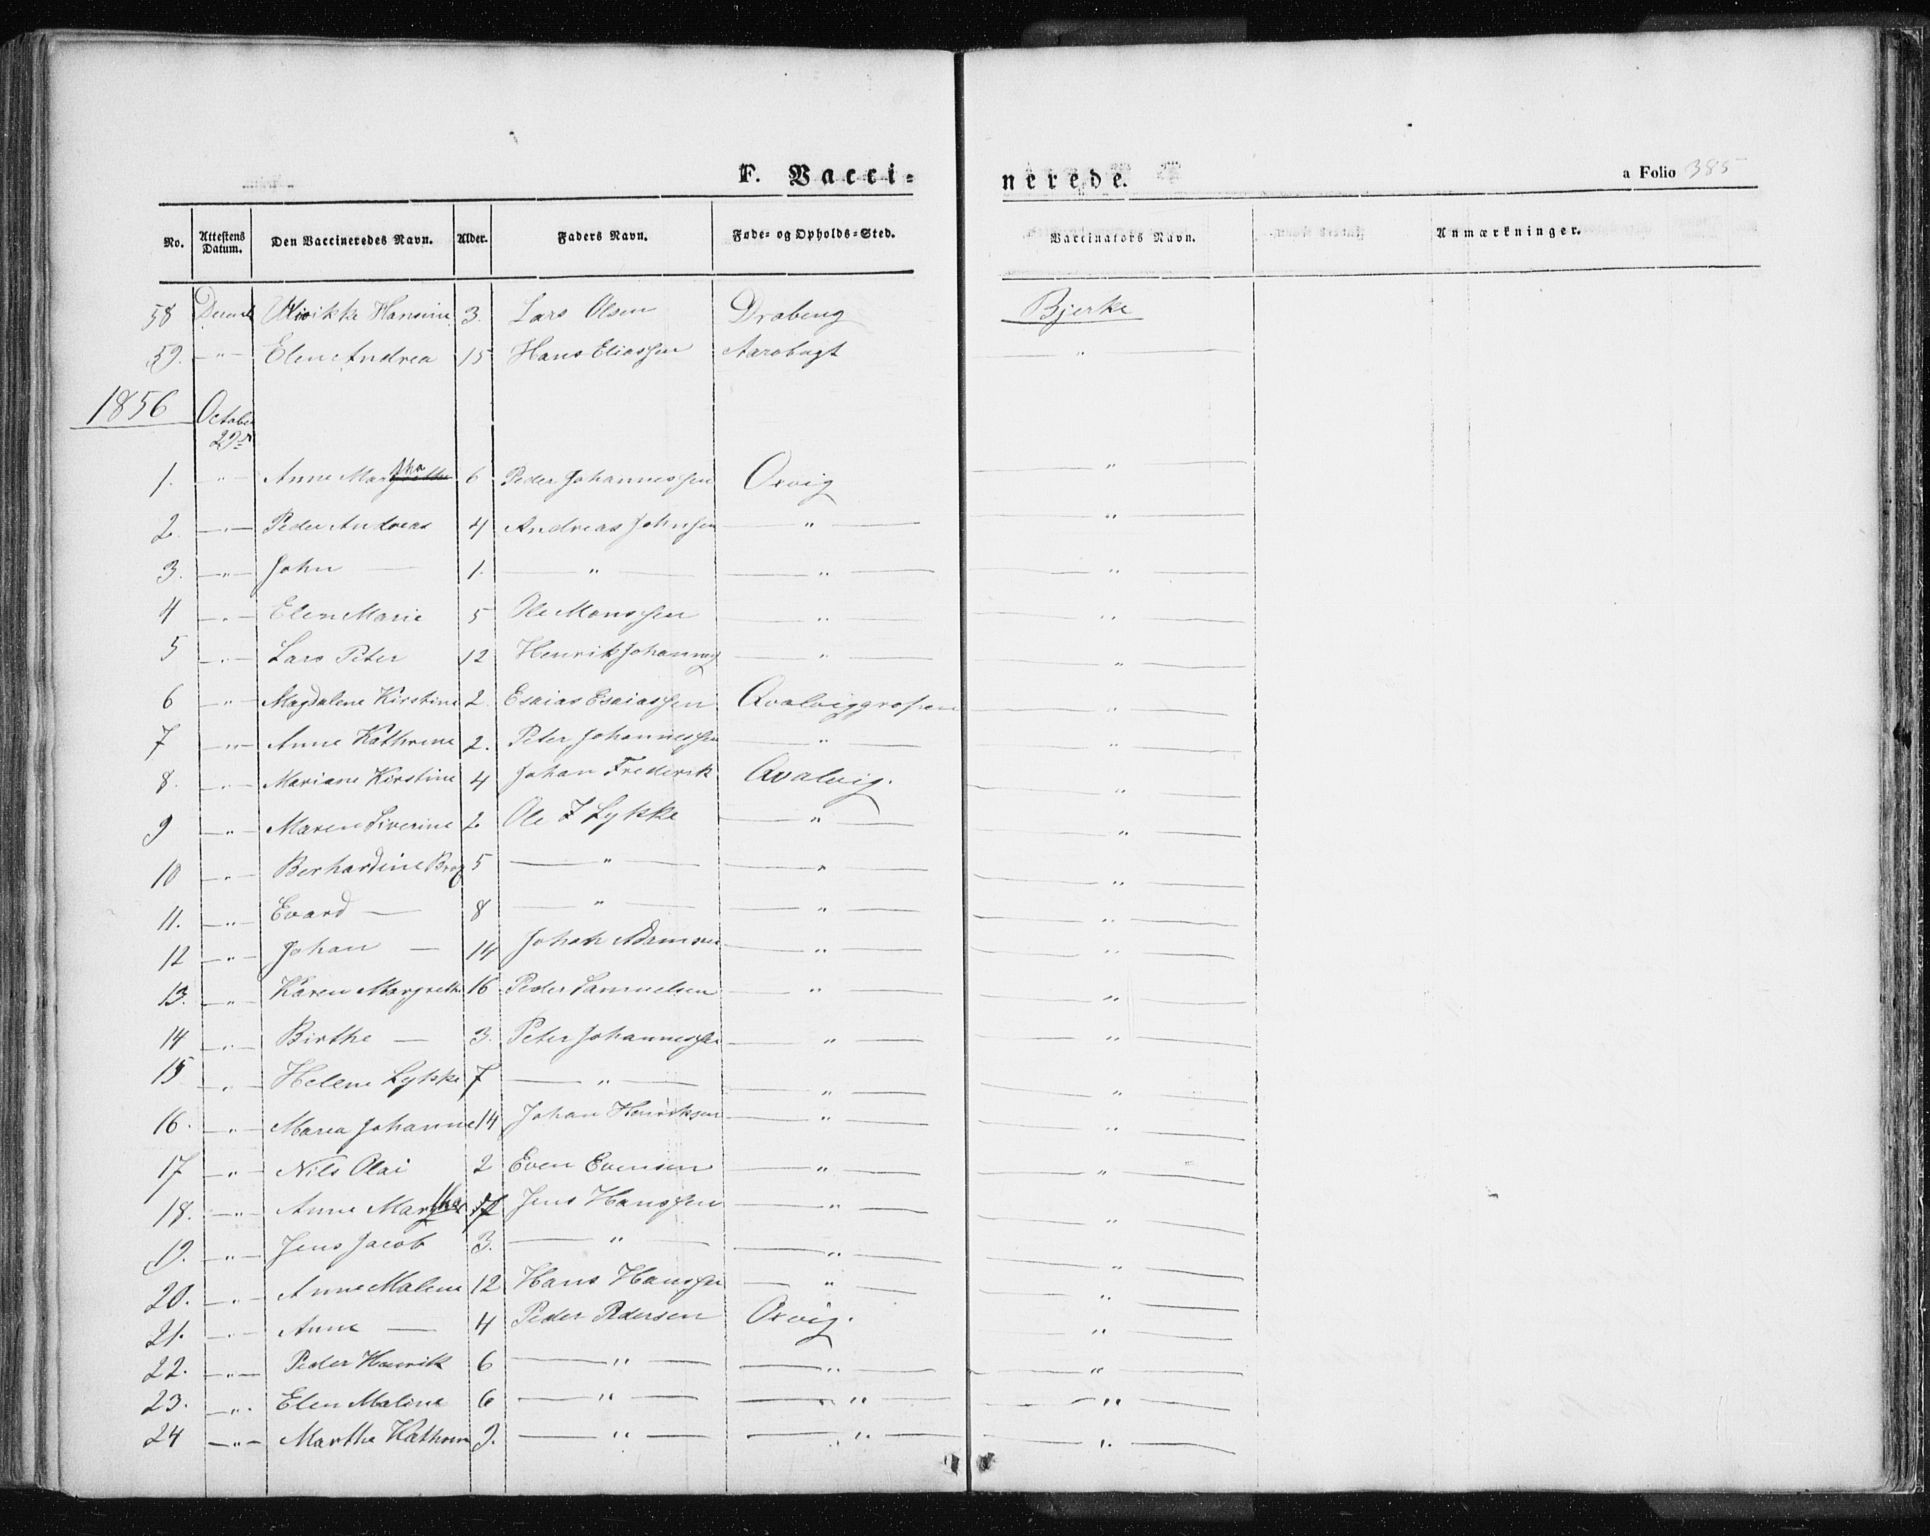 F. Vaccinerede. a Folio 385
No. Attestens Datum. Den Vaccineredes Navn. Alder. Faders Navn. Føde- og Opholds-Sted. Vaccinators Navn. Anmærkninger.
58 Hansine 3. Lars Olsen Drabeng Bjerke
59. -"- Elen Andrea 15 Hans Eliassen Aarobugt — " —
1856 October
29de
1. -"- Anne Martha 6 Peder Johannessen Oxvig — " —
2. -"- Peder Andreas 4 Andreas Johnsen — " — — " —
3. -"- John — 1. — " — — " — — " —
4 -"- Elen Marie 5 Ole Monssen — " — — " —
5 -"- Lars Peter 12 Henrik — " — — " —
6 -"- Magdalene Kirstine 2. Esaias Esaiassen — " —
7 -"- Anne Kathrine 2. Peter Johannessen — " — — " —
8. -"- Mariane Kirstine 4 Johan Frederik Qvalvig. — " —
9 -"- Maren Siverine 2 Ole Lykke — " — — " —
10 -"- Berhardine 5 — " — — " — — " —
11. -"- Evard — 8 — " — — " — — " —
12 -"- Johan — 14 Johan — " — — " —
13. -"- Karen Margrethe 16 Peder Samuelsen — " — — " —
14 -"- Birthe — 3. Peter Johannessen — " — — " —
15 -"- Helene Lykke 7 — " — — " — — " —
16. -"- Maria Johanne 14 Johan Henriksen — " — — " —
17 -"- Nils Olai 2 Even Evensen — " — — " —
18. -"- Anne Martha Jens Hanssen — " — — " —
19. -"- Jens Jacob 3. — " — — " — — " —
20. -"- Anne Malene 12 Hans Hanssen — " — — " —
21. -"- Anne — 4 Peder Pedersen Oxvig. — " —
22. -"- Peder Henrik 6 — " — — " — — " —
23. -"- Elen Maline 6 — " — — " — — " —
24 -"- Marthe Kathrine 9. — " — — " — — " —